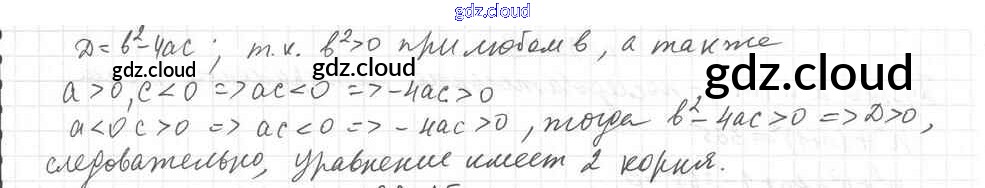 gdz.cloud
D = b² - 4ac ; т.к. b² > 0 при любом b, а также
gdz.cloud gdz.cloud gdz.cloud
a > 0, c < 0 => ac < 0 => -4ac > 0
a < 0 c > 0 => ac < 0 => -4ac > 0, тогда b² - 4ac > 0 => D > 0,
следовательно, уравнение имеет 2 корня.